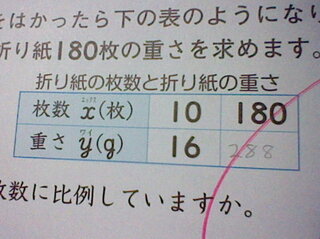 をはかったら下の表のようになり
折り紙180枚の重さを求めます。
折り紙の枚数と折り紙の重さ
枚数 x(枚) 10 180
重さ y(g) 16 288
枚数に比例していますか。